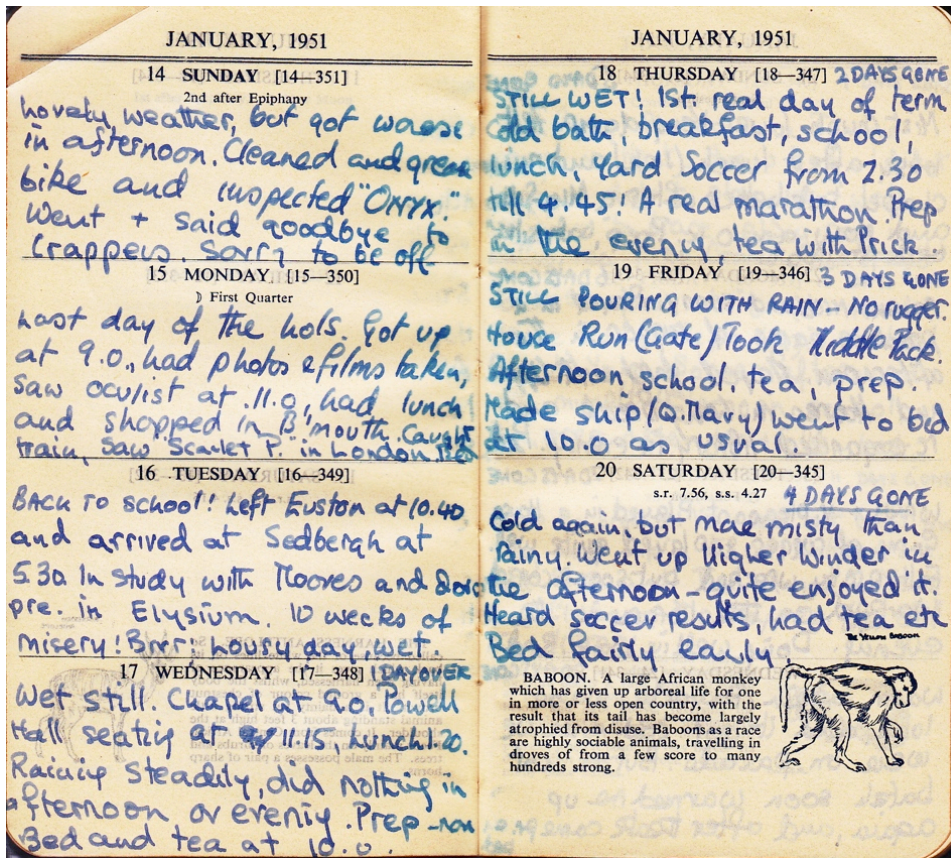 JANUARY, 1951
14 SUNDAY [14—351]
2nd after Epiphany
Lovely weather, but got worse
in afternoon. Cleaned and grease
bike and inspected "ONYX".
Went + said goodbye to
Crappers. Sorry to be off
15 MONDAY [15—350]
☽ First Quarter
Last day of the hols. Got up
at 9.0, had photos & films taken,
saw oculist at 11.0, had lunch
and shopped in B'mouth. Caught
train, saw "Scarlet P." in London.
16 TUESDAY [16—349]
BACK TO SCHOOL! Left Euston at 10.40
and arrived at Sedbergh at
5.30. In study with Moores and
pre. in Elysium. 10 weeks of
misery! Brrr! Lousy day, wet.
17 WEDNESDAY [17—348] 1 DAY OVER
Wet still. Chapel at 9.0, Powell
Hall seating at 11.15 lunch 1.20.
Raining steadily, did nothing in
afternoon or evening. Prep
Bed and tea at 10.0.
JANUARY, 1951
18 THURSDAY [18—347] 2 DAYS GONE
STILL WET! 1st. real day of term
Cold bath, breakfast, school,
lunch, Yard Soccer from 2.30
till 4.45! A real marathon. Prep
in the evening, tea with Prick.
19 FRIDAY [19—346] 3 DAYS GONE
STILL POURING WITH RAIN - No rugger.
House Run (Gate) Took Middle Pack.
Afternoon school, tea, prep.
Made ship (Q. Mary) went to bed
at 10.0 as usual.
20 SATURDAY [20—345]
s.r. 7.56, s.s. 4.27 4 DAYS GONE
Cold again, but more misty than
rainy. Went up Higher Winder in
the afternoon - quite enjoyed it.
Heard soccer results, had tea etc
Bed fairly early
The Young Baboon
BABOON. A large African monkey
which has given up arboreal life for one
in more or less open country, with the
result that its tail has become largely
atrophied from disuse. Baboons as a race
are highly sociable animals, travelling in
droves of from a few score to many
hundreds strong.